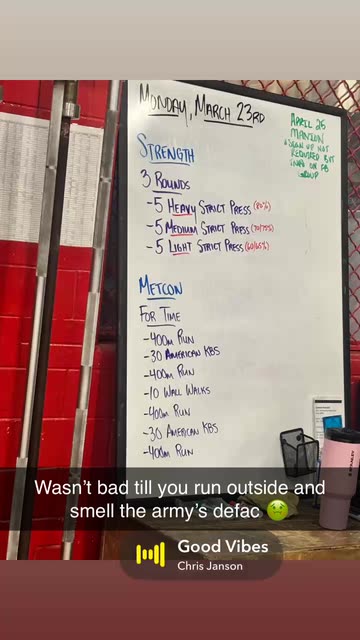 Monday, March 23rd
April 25
Strength
3 Rounds
-5 Heavy Strict Press (80%)
-5 Medium Strict Press (70/75%)
-5 Light Strict Press (60/65%)
Metcon
For Time
-400m Run
-30 American KBS
-400m Run
-10 Wall Walks
-400m Run
-30 American KBS
-400m Run
Wasn't bad till you run outside and
smell the army's defac 🤢
Good Vibes
Chris Janson